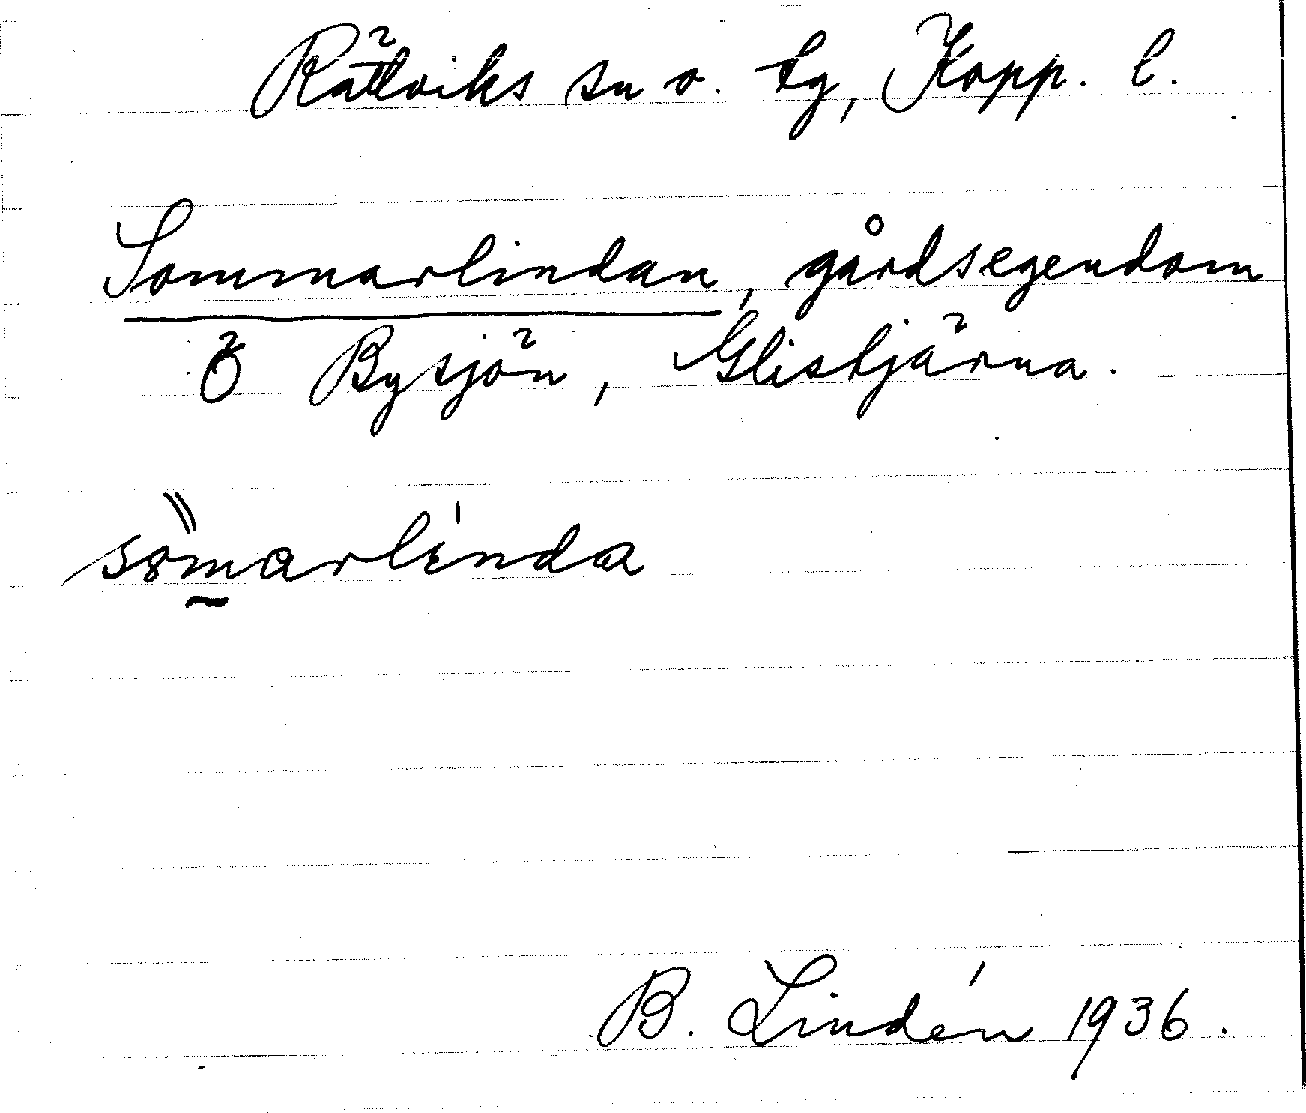 Rättviks sn o. tg, Kopp. l.
Sommarlindan, gårdsegendom
Ö Bysjön, Glistjärna.
sömarlinda
B. Lindén 1936.